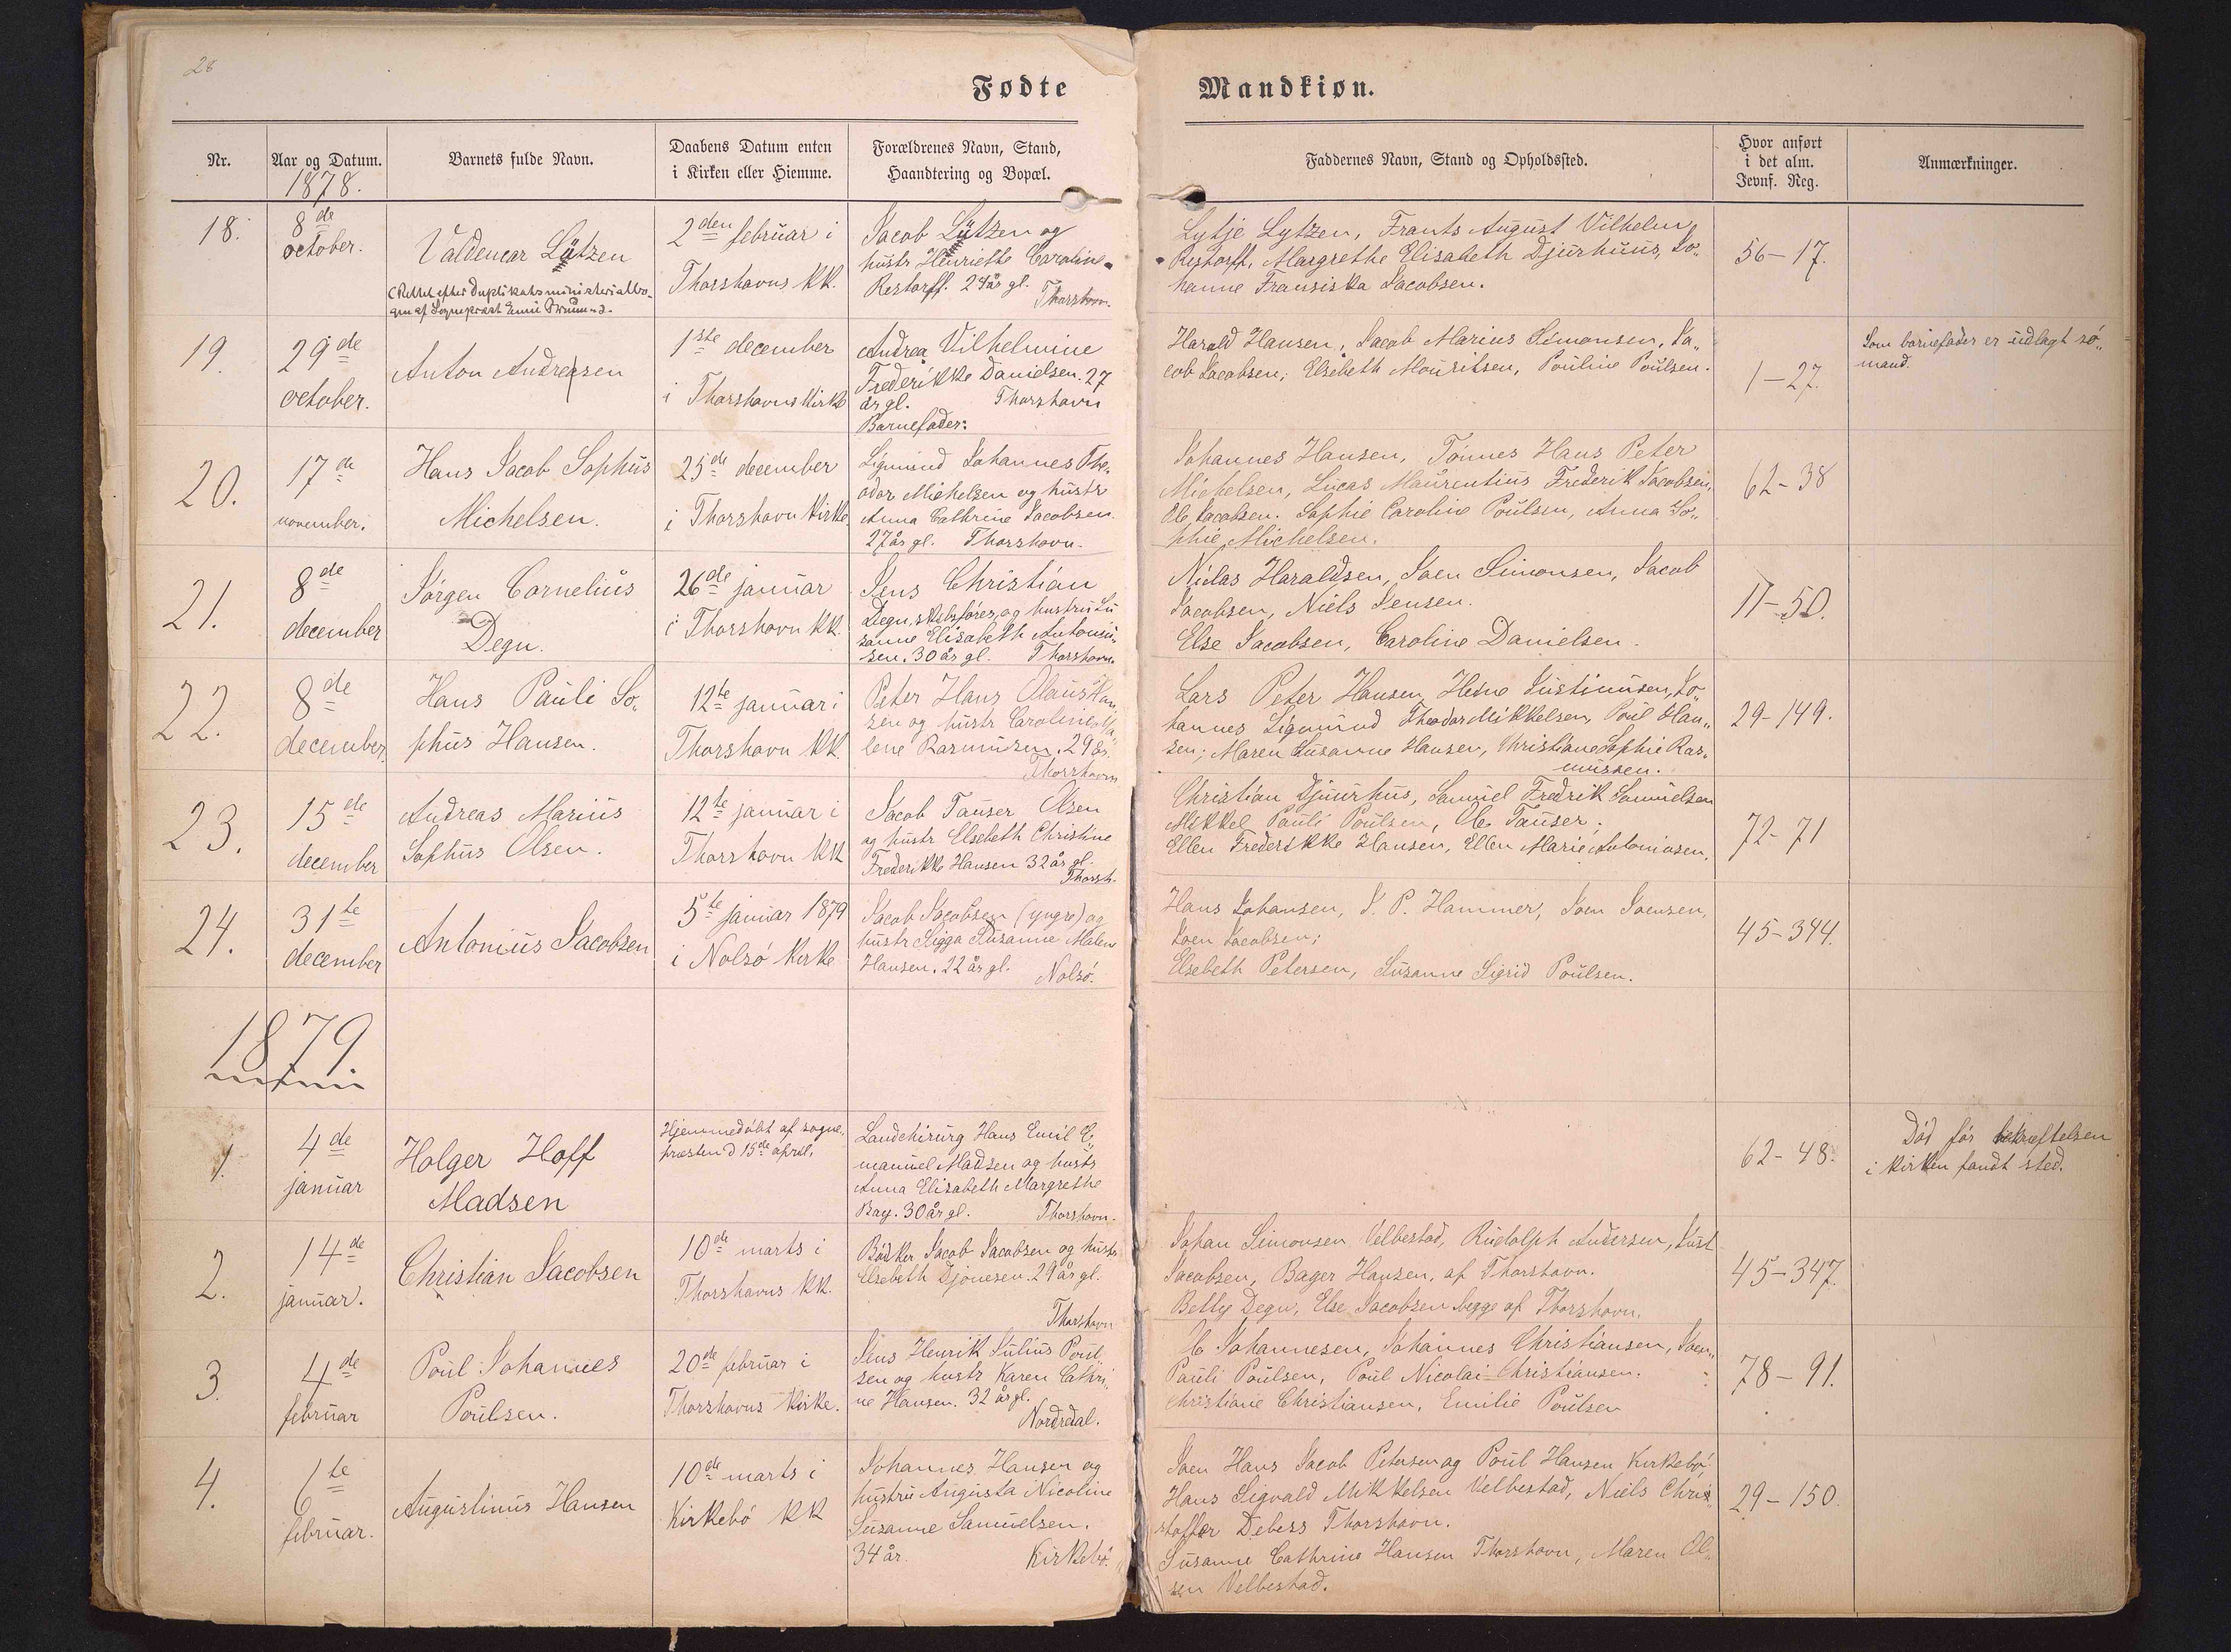 28
Fødte
Mandkiøn.
Nr.
Aar og Datum.
1878.
Barnets fulde Navn.
Daabens Datum enten
i Kirken eller Hiemme.
Forældrenes Navn, Stand,
Haandtering og Bopæl.
Faddernes Navn, Stand og Opholdssted.
Hvor anført
i det alm.
Jevnf. Reg.
Anmærkninger.
18.
8de
october.
Valdemar Lützen
(Rettet efter Duplikatsministerialbo-
gen af Sognepræst
2den februar i
Thorshavns KK.
Jacob Lützen og
hustr Henriette Caroline
Restorff. 24 år gl.
Thorshavn.
Lytje Lytzen, Frants August Vilhelm
Restorff, Margrethe Elisabeth Djurhuus, Jo„
hanne Fransiska Jacobsen.
56-17.
19.
29de
october.
Anton Andreasen
1ste december
i Thorshavns Kirke
Andrea Vilhelmine
Frederikke Danielsen. 27
år gl. Thorshavn
Barnefader:
Harald Hansen, Jacob Marius Simonsen, Ja„
cob Jacobsen; Elsebeth Mouritsen, Pouline Poulsen.
1-27.
Som barnefader er udlagt sö„
mand.
20.
17de
november.
Hans Jacob Sophus
Michelsen.
25de december
i Thorshavn Kirke
Sigmund Johannes The„
odor Michelsen og hustr
Anna Cathrine Jacobsen.
27 år gl. Thorshavn.
Johannes Hansen, Tönnes Hans Peter
Michelsen, Lucas Maurentius Frederik Jacobsen,
Ole Jacobsen. Sophie Caroline Poulsen, Anna So„
phie Michelsen.
62-38
21.
8de
december
Jörgen Cornelius
Degn.
26de januar
i Thorshavn KK.
Jens Christian
Degn, skibsförer, og hustru Su
sanne Elisabeth Antoniu„
sen. 30 år gl. Thorshavn.
Niclas Haraldsen, Joen Simonsen, Jacob
Jacobsen, Niels Jensen.
Else Jacobsen, Caroline Danielsen.
11-50.
22.
8de
december.
Hans Pauli So„
phus Hansen.
12te januar i
Thorshavn KK.
Peter Hans Olaus Han„
sen og hustr Caroline Ma„
lene Rasmussen. 29 år.
Thorshavn
Lars Peter Hansen, Heine Justinussen, Jo„
hannes Sigmund Theodor Mikkelsen, Poul Han„
sen; Maren Susanne Hansen, Christiane Sophie Ras„
mussen.
29-149.
23.
15de
december
Andreas Marius
Sophus Olsen.
12te januar i
Thorshavn KK
Jacob Tauser Olsen
og hustr Elsebeth Christine
Frederikke Hansen 32 år gl.
Thorsh.
Christian Djuurhus, Samuel Fredrik Samuelsen
Mikkel Pauli Poulsen, Ole Tauser;
Ellen Frederikke Hansen, Ellen Marie Antoniusen.
72-71
24.
31te
december
Antonius Jacobsen
5te januar 1879
i Nolsö Kirke
Jacob Jacobsen (yngre) og
hustr Sigga Susanne Malene
Hansen. 22 år gl. Nolsö.
Hans Johansen, J. P. Hammer, Joen Joensen,
Joen Jacobsen;
Elsebeth Petersen, Susanne Sigrid Poulsen.
45-344.
1879.
1.
4de
januar
Holger Hoff
Madsen
Hjemmedöbt af sogne„
præsten d 15de april.
Landchirurg Hans Emil E„
manuel Madsen og hustr
Anna Elisabeth Margrethe
Bay. 30 år gl. Thorshavn.
62-48.
Död för bekræftelsen
i Kirken fandt sted.
2.
14de
januar.
Christian Jacobsen
10de marts i
Thorshavns KK.
Bödker Jacob Jacobsen og hustr
Elsebeth Djonesen. 29 år gl.
Thorshavn
Johan Simonsen Velbestad, Rudolph Andersen, Just
Jacobsen, Bager Hansen, af Thorshavn.
Betty Degn, Else Jacobsen begge af Thorshavn.
45-347.
3.
4de
februar
Poul Johannes
Poulsen.
20de februar i
Thorshavns Kirke.
Jens Henrik Julius Poul„
sen og hustr Karen Cathri„
ne Hansen. 32 år gl.
Nordredal.
Johannesen, Johannes Christiansen, Joen„
Pauli Poulsen, Poul Nicolai Christiansen.
Christiane Christiansen, Emilie Poulsen
78-91.
4.
6te
februar.
Augustinus Hansen
10de marts i
Kirkebö KK
Johannes Hansen og
hustru Augusta Nicoline
Susanne Samuelsen.
34 år. Kirkebö.
Joen Hans Jacob Petersen og Poul Hansen Kirkebö
Hans Sigvald Mikkelsen Velbestad, Niels Chri„
stoffer Debess Thorshavn.
Susanne Cathrine Hansen Thorshavn, Maren Ol„
sen Velbestad.
29-150.